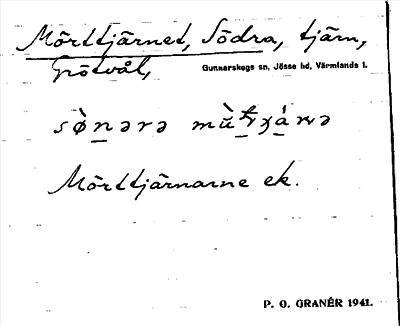 Mörttjärnet, Södra, tjärn,
Grötvål, Gunnarskogs sn, Jösse hd, Värmlands l.
Mörttjärnarne ek.
P. O. GRANÉR 1941.